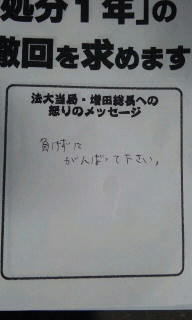 処分1年」の
撤回を求めます
法大当局・増田総長への
怒りのメッセージ
負けずに
がんばって下さい。